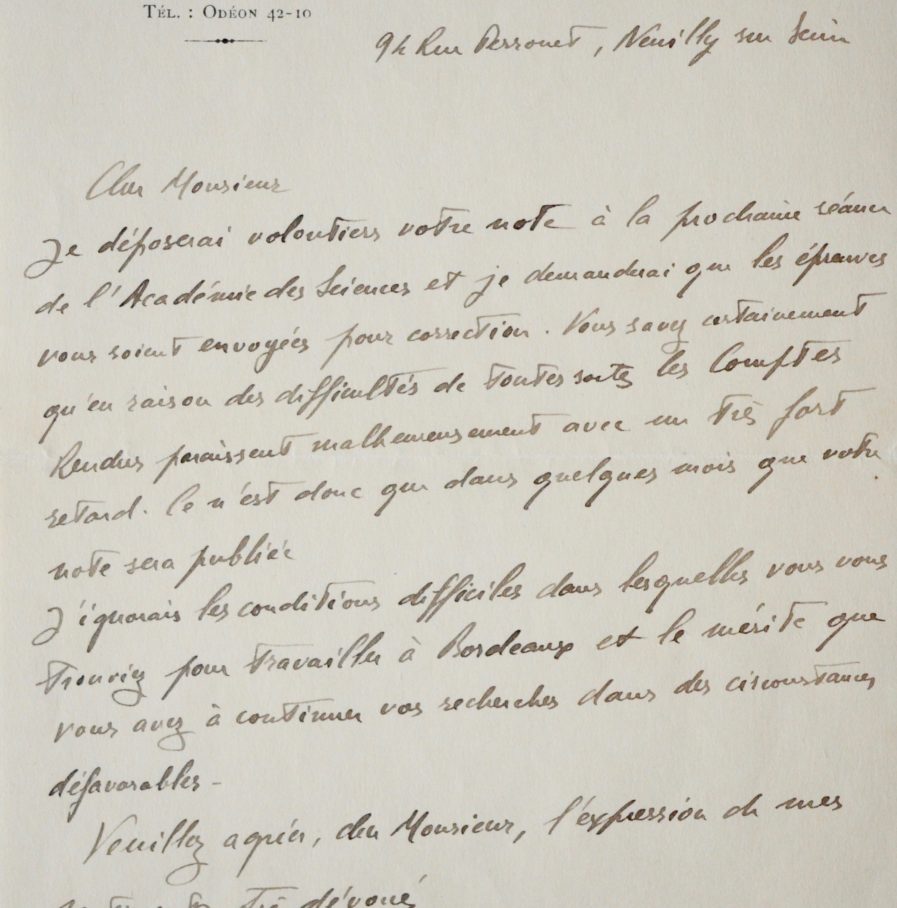 TÉL. : ODÉON 42-10
94 Rue Perronet, Neuilly sur Seine
Cher Monsieur
Je déposerai volontiers votre note à la prochaine séance
de l'Académie des Sciences et je demanderai que les épreuves
vous soient envoyées pour correction. Vous savez certainement
qu'en raison des difficultés de toutes sortes les Comptes
Rendus paraissent malheureusement avec un très fort
retard. Ce n'est donc que dans quelques mois que votre
note sera publiée
J'ignorais les conditions difficiles dans lesquelles vous vous
trouviez pour travailler à Bordeaux et le mérite que
vous avez à continuer vos recherches dans des circonstances
défavorables -
Veuillez agréer, cher Monsieur, l'expression de mes
très dévoué